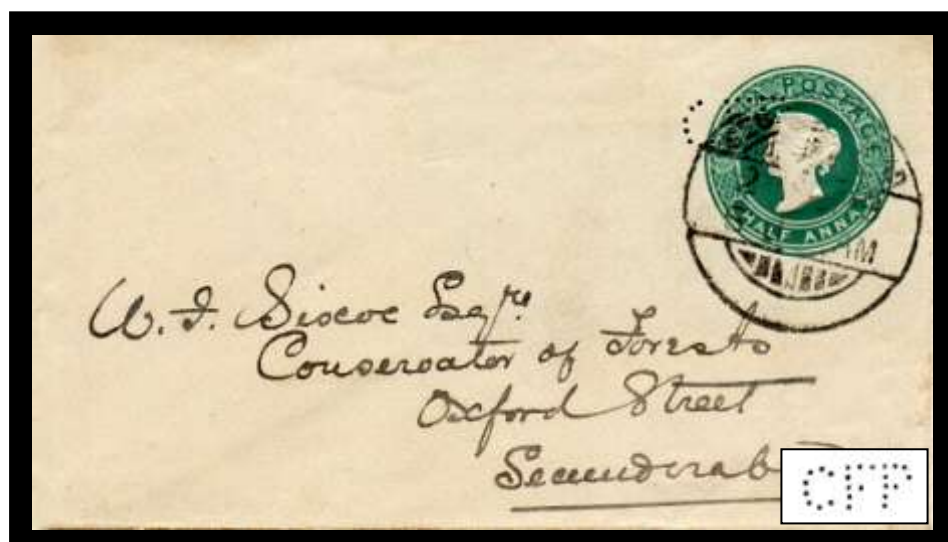 POSTAGE
HALF ANNA
W. F. Biscoe Esqre.
Conservator of Forests
Oxford Street
CFP